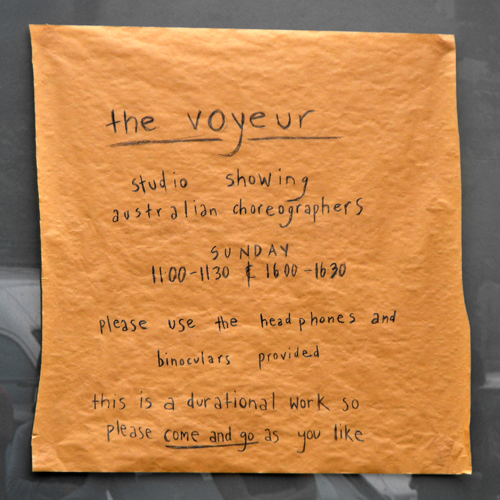 the voyeur
studio showing
australian choreographers
SUNDAY
1100-1130 & 1600-1630
please use the headphones and
binoculars provided
this is a durational work so
please come and go as you like